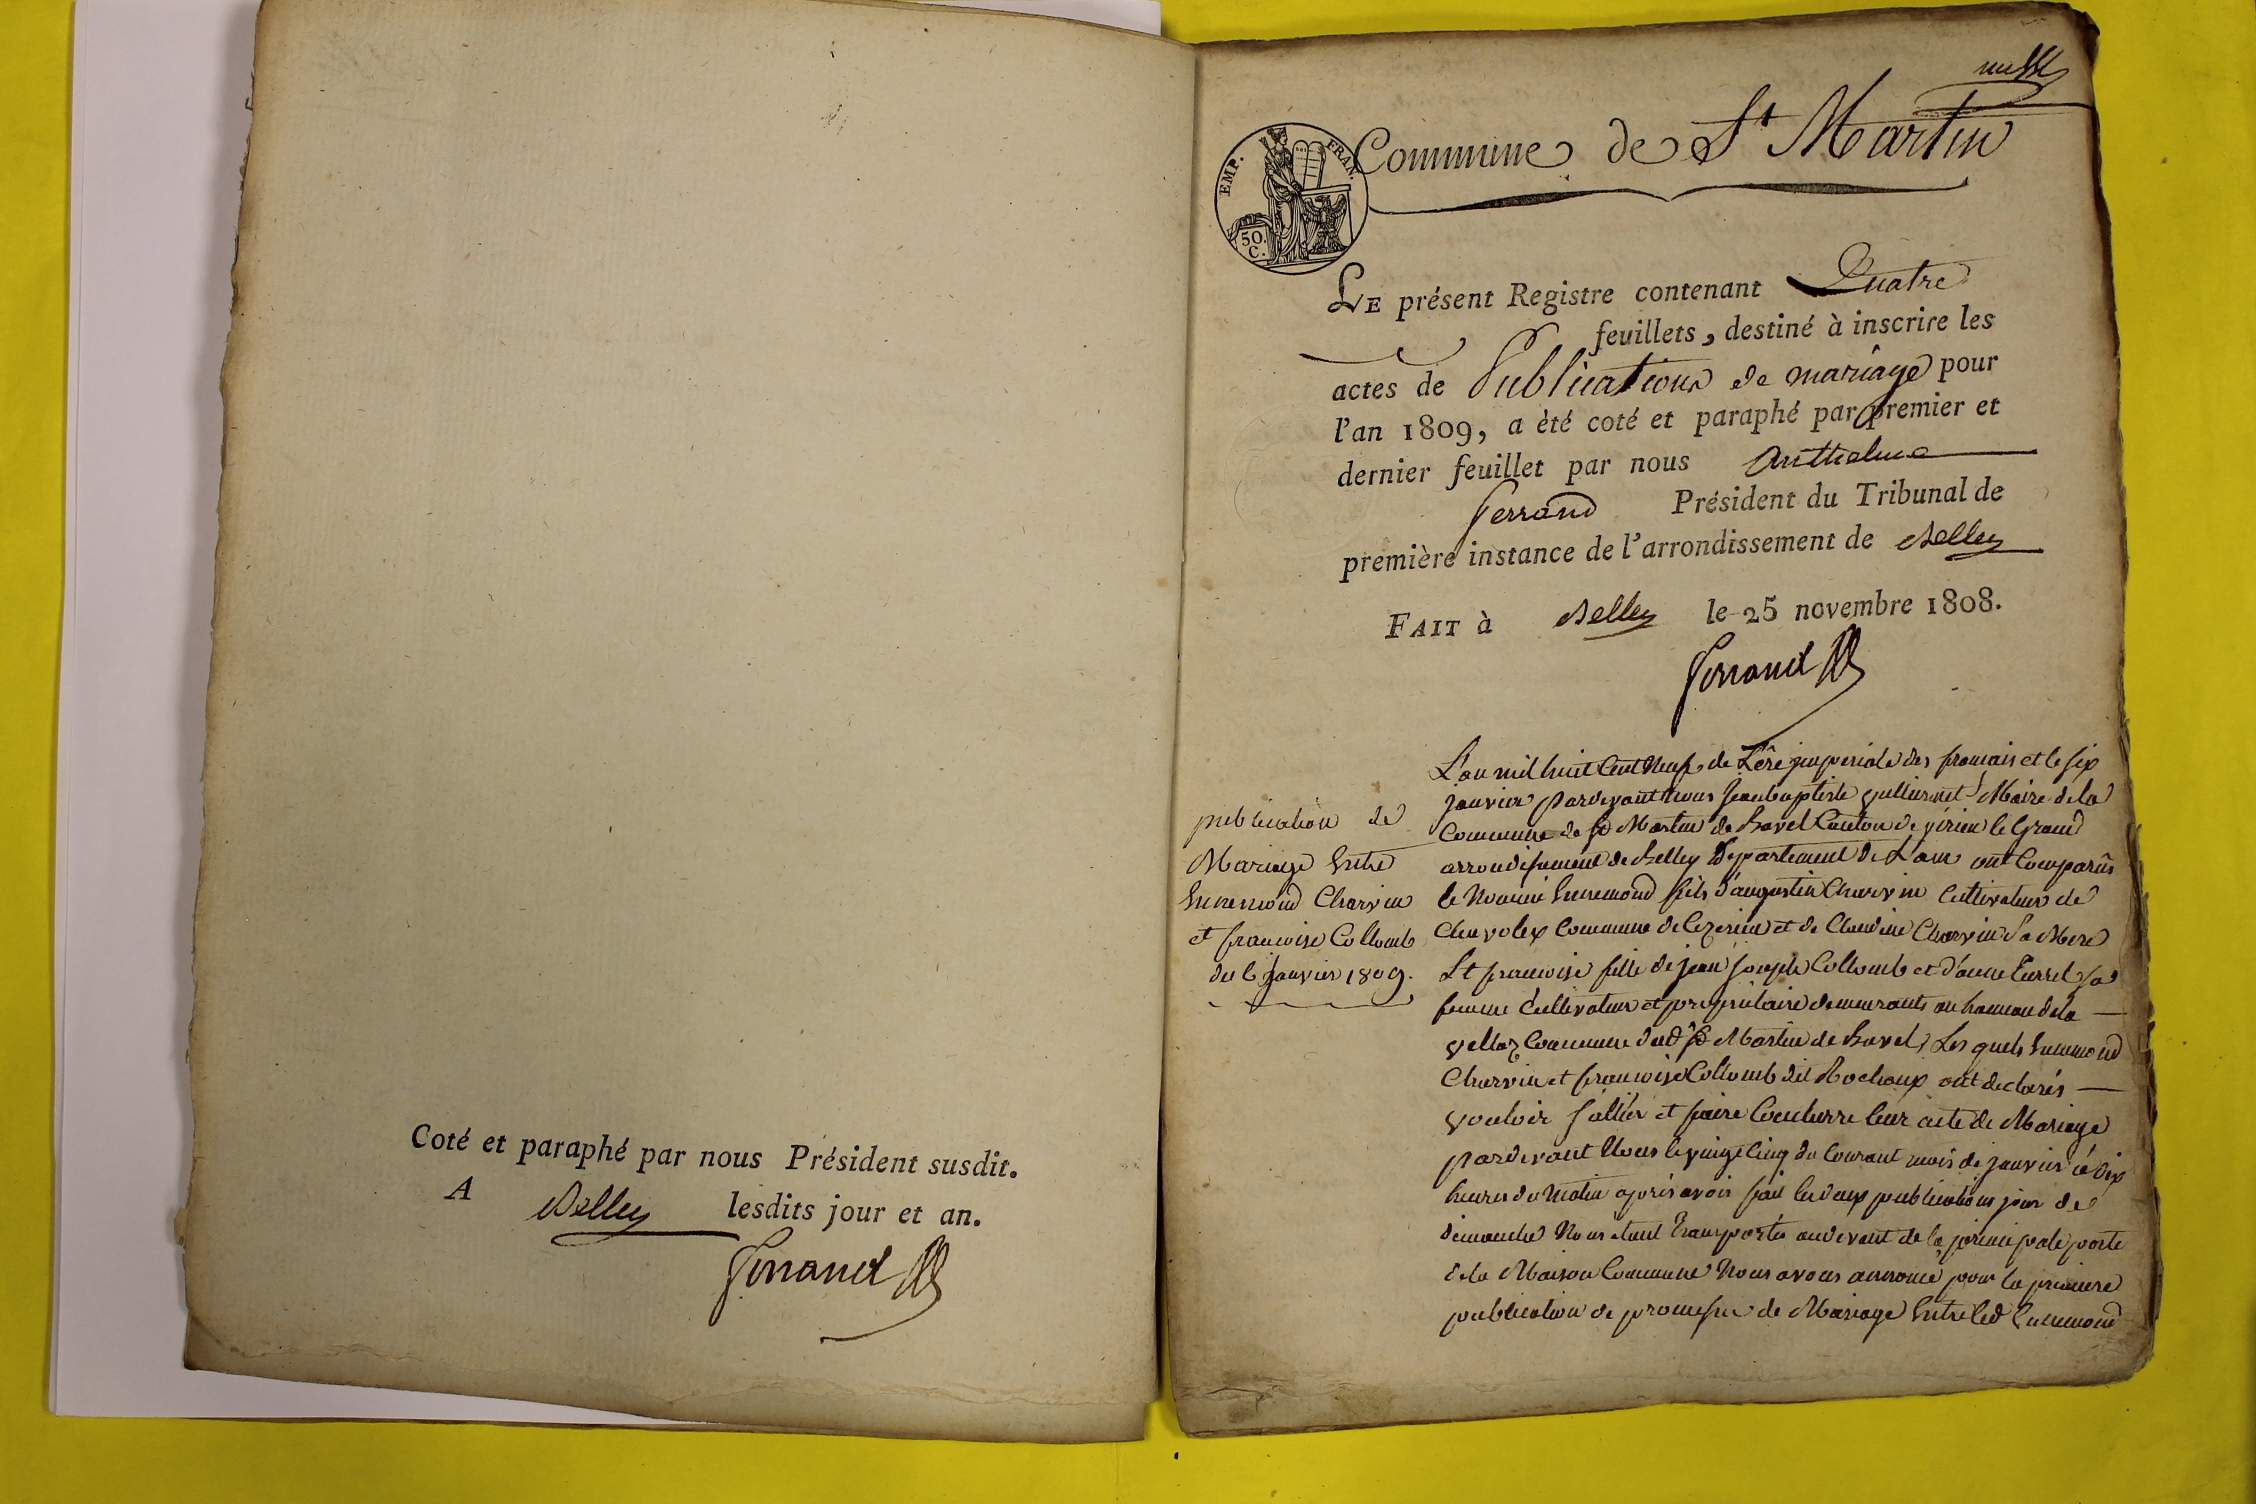 Coté et paraphé par nous Président susdit.
A Belley lesdits jour et an.
Ferrand
Commune de St Martin
EMP. FRAN.
50.
C.
LE présent Registre contenant Quatre
feuillets, destiné à inscrire les
actes de Publications de mariage pour
l'an 1809, a èté coté et paraphé par premier et
dernier feuillet par nous Anthelme
Ferrand Président du Tribunal de
première instance de l'arrondissement de Belley
FAIT à Belley le 25 novembre 1808.
Ferrand
publication de
Mariage Entre
Ennemond Charvin
et francoise Collomb
du 6 Janvier 1809.
L'an mil huit Cent Neuf de L'ère imperiale des francais et le six
janvier pardevant Nous Jean baptiste Maire de la
Commune de St Martin de Bavel Canton de virieu le Grand
arrondissement de Belley Département de L'ain ont Comparûs
le Nommé Ennemond fils d'augustin Charvin Cultivateur de
Chavolex Commune de Cezerieu et de Claudine Charvin Sa Mere
Et francoise fille de jean joseph Collomb et d'anne Turrel sa
femme Cultivateur et propriétaire demeurants au hameau de la
vellaz Commune dud St Martin de Bavel, Les quels Ennemond
Charvin et francoise Collomb dit Rochaux ont declarés
vouloir s'allier et faire Conclurre leur acte de Mariage
pardevant Nous le vingt Cinq du Courant mois de janvier à dix
heures du Matin après avoir fait les deux publications jour de
dimanche Nous etant Transportés au devant de la principale porte
de la Maison Commune Nous avons annoncé pour la premiere
publication de promesse de Mariage Entre led Ennemond